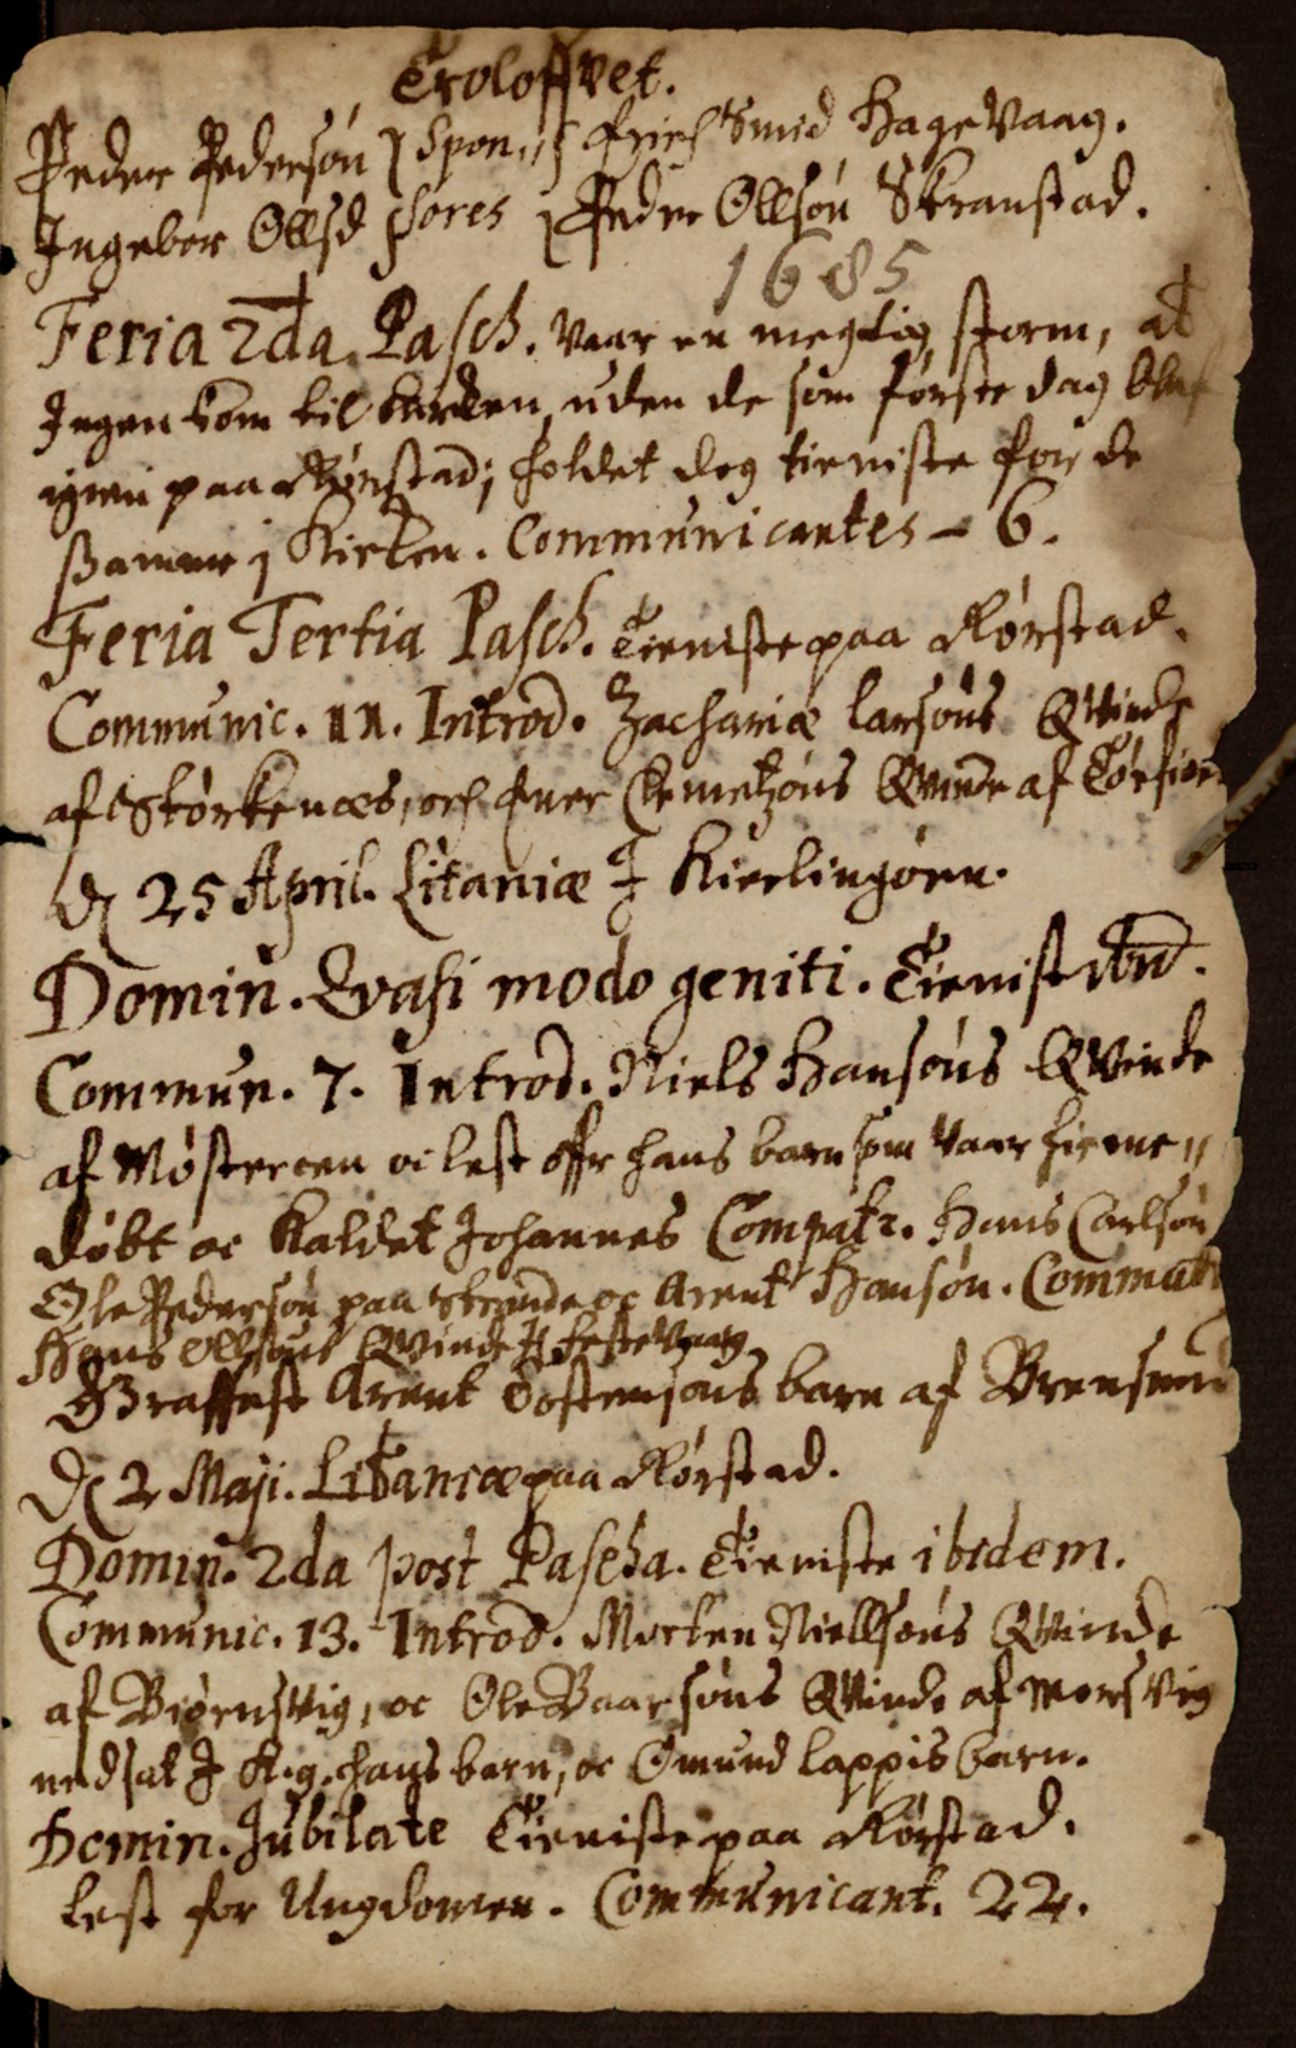 Troloffvet.
Peder Pedersøn } Spon,, { Erich Smid Hagevaag.
Ingebor Ollsd } sores { Peder Ollsøn Skranstad.
1685
Feria 2da. Pasch. Vaar en megtig storm, at
Ingen kom til kircken, uden de som første dag blef
igien paa Rørstad; holdet dog tieniste for de
samme i Kirken. Communicantes – 6.
Feria Tertia Pasch. Tieniste paa Rørstad.
Communic. 11. Introd. Zachariæ Larsøns Qvinde
af Størkenæs, och Clemetzøns Qvinde af
D 25 April. Litaniæ I Kierlingøen.
Domin. Qvasi modo geniti. Tienist ibid.
Commun. 7. Introd. Niels Hansøns Qvinde
af Møsteröen oc lest offr hans barn som vaar hieme,,
døbt oc kaldet Johannes Compatr. Hans Carlsøn
Ole Pedersøn paa Strande oc Arent Hansøn. Commatr
Hans Ollsøns Qvinde Festevaag
Graffest Arent Tostensøns barn af
D 2 Maji. Litaniæ paa Rørstad.
Domin. 2da post Pascha. Tieniste ibidem.
Communic. 13. Introd. Morten Niellsøns Qvinde
af Biørnsvig, oc Ole Baarsøns Qvinde af Morsvig
nedsat I K.g. hans barn, oc Omund lappis barn.
Domin. Jubilate Tieniste paa Rørstad.
Lest for Ungdomen. Communicant. 22.